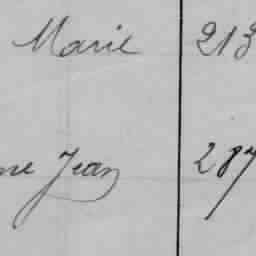 Marie 213
ne Jean 287